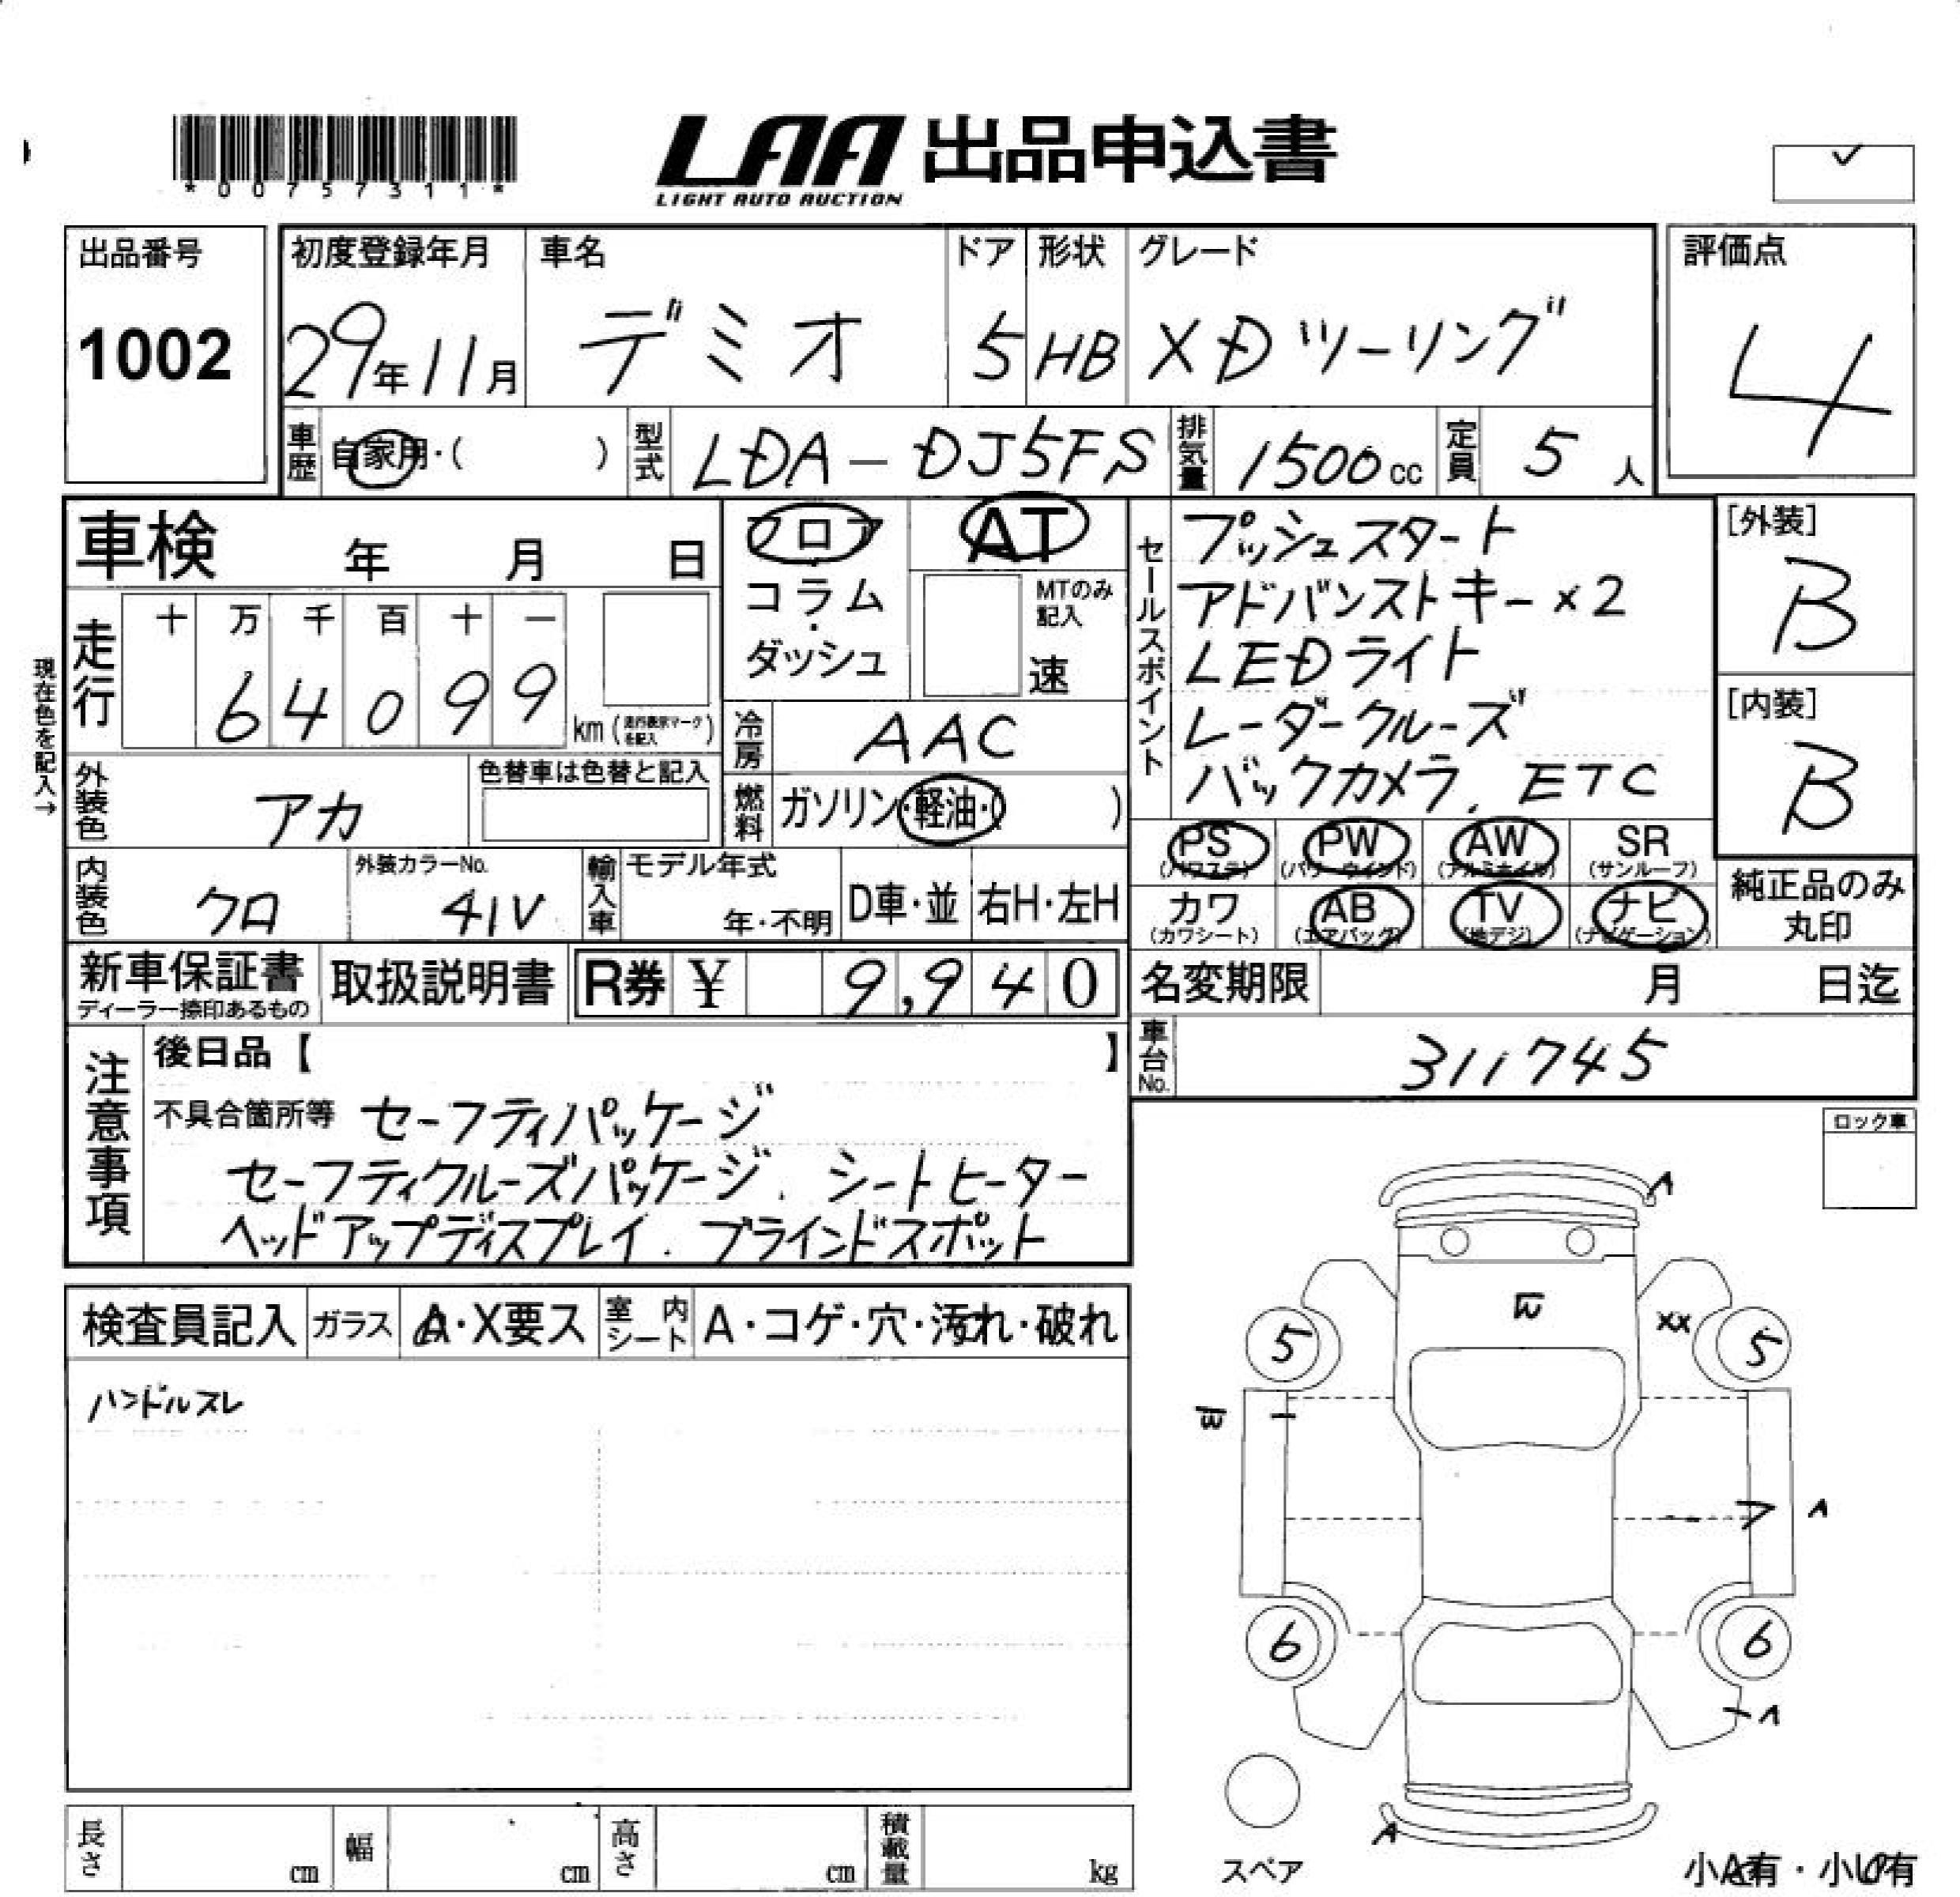 *00757311*
LAA 出品申込書
LIGHT AUTO AUCTION
出品番号
1002
初度登録年月
29年11月
車名
デミオ
ドア
5
形状
HB
グレード
XDツーリング
評価点
4
車歴
自家用・( )
型式
LDA-DJ5FS
排気量
1500cc
定員
5人
車検 年 月 日
フロア
コラム
ダッシュ
AT
MTのみ
記入
速
セールスポイント
プッシュスタート
アドバンストキー×2
LEDライト
レーダークルーズ
バックカメラ. ETC
[外装]
B
[内装]
B
現在色を記入→
走行
十 万 千 百 十 一
6 4 0 9 9
km(走行表示マークを記入)
冷房
AAC
外装色
アカ
色替車は色替と記入
燃料
ガソリン・軽油・( )
内装色
クロ
外装カラーNo.
41V
輸入車
モデル年式
年・不明
D車・並
右H・左H
PS
(パワステ)
PW
(パワーウインド)
AW
(アルミホイル)
SR
(サンルーフ)
カワ
(カワシート)
AB
(エアバッグ)
TV
(地デジ)
ナビ
(ナビゲーション)
純正品のみ
丸印
新車保証書
ディーラー捺印あるもの
取扱説明書
R券 ¥ 9,940
名変期限 月 日迄
車台No.
311745
注意事項
後日品【 】
不具合箇所等 セーフティパッケージ
セーフティクルーズパッケージ. シートヒーター
ヘッドアップディスプレイ. ブラインドスポット
ロック車
検査員記入
ガラス
A・X要ス
室内シート
A・コゲ・穴・汚れ・破れ
ハンドルスレ
A
XX
5
5
A
6
6
A
A
スペア
長さ cm
幅 cm
高さ cm
積載量 kg
小A有・小U有